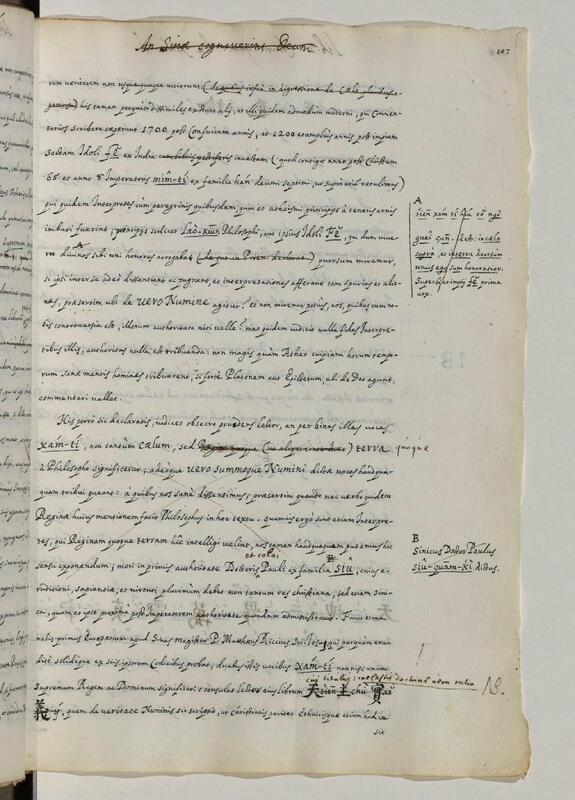 An Sinæ cognoverint Deum
107
rum veritatem non usquequaque vitiarunt (de quibus infra in digressione de Cælo pluribus a-
gemus) his tamen perquàm dissimiles existunt alij, et illi quidem admodum moderni, qui Commen-
tarios scribere cœperunt 1700 post Confucium annis, et 1200 et amplius annis post impiam
sectam Idoli Fĕ ex India invectam (quod contigit anno post Christum
65. et anno 8 Imperatoris mîm-tí ex familia hán decimi septimi, ut supra retulimus)
qui quidem Interpretes cum peregrinis quibusdam, quin et atheismi principijs à teneris annis
imbuti fuerint; principijs scilicet Laò-kiun Philosophi, aut ipsius Idoli Fĕ, qui dum vive-
ret divinos sibi uni honores arrogabat quorsum miremur,
si ipsi inter se adeò dissentiant ac pugnent, et interpretationes afferant tam spurias et alie-
nas, præsertim ubi de vero Numine agitur? et non miremur potius, eos, quibuscum no-
bis controversia est, illorum authoritate niti velle? mao quidem iudicio nulla fides Interpre-
tibus illis, authoritas nulla est tribuenda: non magis quàm Atheo cuipiam horum tempo-
rum sanæ mentis homines tribuerent, si fortè Platonem aut Epictetum, ubi de Deo agunt,
commentari vellet.
His porrò sic declaratis, iudicet obsecro prudens lector, an per binas illas voces
xám-tí, non tantùm cælum, sed terra quoque
à Philosopho significetur; adeoque vero summoque Numini dictæ voces haudqua-
quam tribui queant: à quibus nos sanè dissentimus; præsertim quando nec verbo quidem
Reginæ huius mentionem facit Philosophus in hoc textu. quamvis ergò sint etiam Interpre-
tes, qui Reginam quoque terram hîc intelligi velint, nos tamen haudquaquam putamus hîc
et colai,
sensu exponendum; moti in primis authoritate Doctoris Pauli ex familia Siû; cuius e-
ruditioni, sapientiæ, et virtuti plurimùm debet non tantum res christiana, sed etiam Sini-
ca, quam et ipse proxima post Imperatorem authoritate quondam administravit. Facit etiam
nobis primus Europæorum apud Sinas magister P. Matthæus Riccius Soc. Jesu, qui perquàm eru-
ditè solidèque ex suis ipsorum Codicibus probat, duabus istis vocibus Xám-tí non nisi unum
cui titulus: cælestis doctrinæ vera ratio
Supremum Regem ac Dominum significari: consulat lector eius librum 天 tiēn 主 chù 實 xĕ
義 ý, quem de veritate Numinis sic scripsit, ut Christianis pariter Ethnicisque etiam hodie
sit
A
tiēn xám tí hiá
guêi gùn. id est: in cælo
supra, et in terra deorsum
unus ego sum honoratior.
Superbissimi Fĕ prima
vox.
B
Sinicus Doctor Paulus
Siû-quām-kì dictus.
NB.